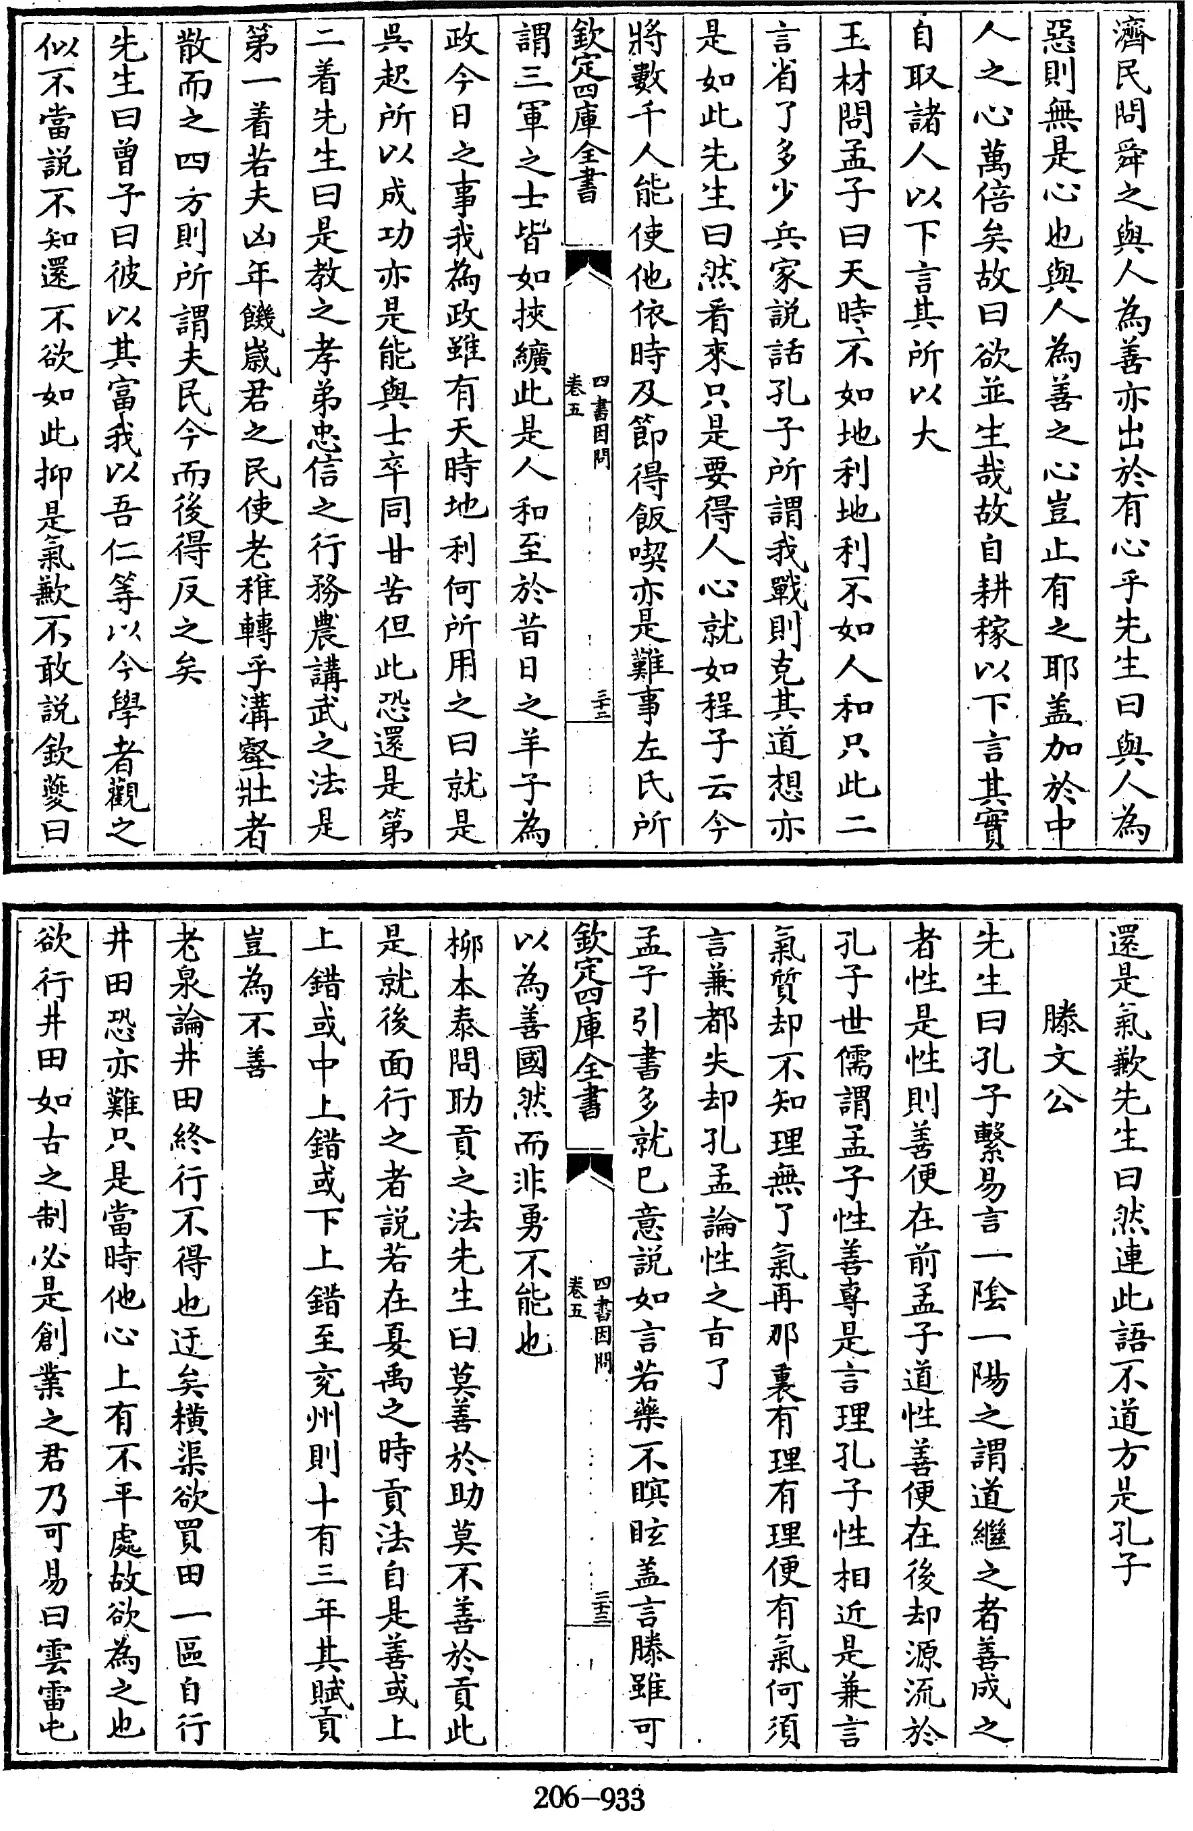 濟民問舜之與人為善亦出於有心乎先生曰與人為
惡則無是心也與人為善之心豈止有之耶盖加於中
人之心萬倍矣故曰欲並生哉故自耕稼以下言其實
自取諸人以下言其所以大
玉材問孟子曰天時不如地利地利不如人和只此二
言省了多少兵家説話孔子所謂我戰則克其道想亦
是如此先生曰然看來只是要得人心就如程子云今
將數千人能使他依時及節得飯喫亦是難事左氏所
欽定四庫全書
四書因問
卷五
三十二
謂三軍之士皆如挾纊此是人和至於昔日之羊子為
政今日之事我為政雖有天時地利何所用之曰就是
吳起所以成功亦是能與士卒同甘苦但此恐還是第
二着先生曰是教之孝弟忠信之行務農講武之法是
第一着若夫凶年饑歲君之民使老稚轉乎溝壑壯者
散而之四方則所謂夫民今而後得反之矣
先生曰曾子曰彼以其富我以吾仁等以今學者觀之
似不當説不知還不欲如此抑是氣歉不敢説欽夔曰
還是氣歉先生曰然連此語不道方是孔子
滕文公
先生曰孔子繫易言一陰一陽之謂道繼之者善成之
者性是性則善便在前孟子道性善便在後却源流於
孔子世儒謂孟子性善專是言理孔子性相近是兼言
氣質却不知理無了氣再那裏有理有理便有氣何須
言兼都失却孔孟論性之旨了
孟子引書多就已意説如言若藥不瞑眩盖言滕雖可
欽定四庫全書
四書因問
卷五
三十三
以為善國然而非勇不能也
柳本泰問助貢之法先生曰莫善於助莫不善於貢此
是就後面行之者説若在夏禹之時貢法自是善或上
上錯或中上錯或下上錯至兖州則十有三年其賦貢
豈為不善
老泉論井田終行不得也迂矣横渠欲買田一區自行
井田恐亦難只是當時他心上有不平處故欲為之也
欲行井田如古之制必是創業之君乃可易曰雲雷屯
206-933